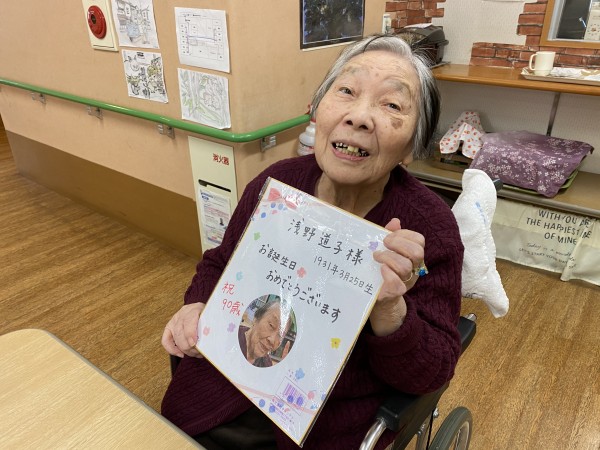 浅野 道子 様
1931年3月25日生
お誕生日
おめでとうございます
祝
90歳
消火器
WITH YOU ARE
THE HAPPIEST
OF MINE